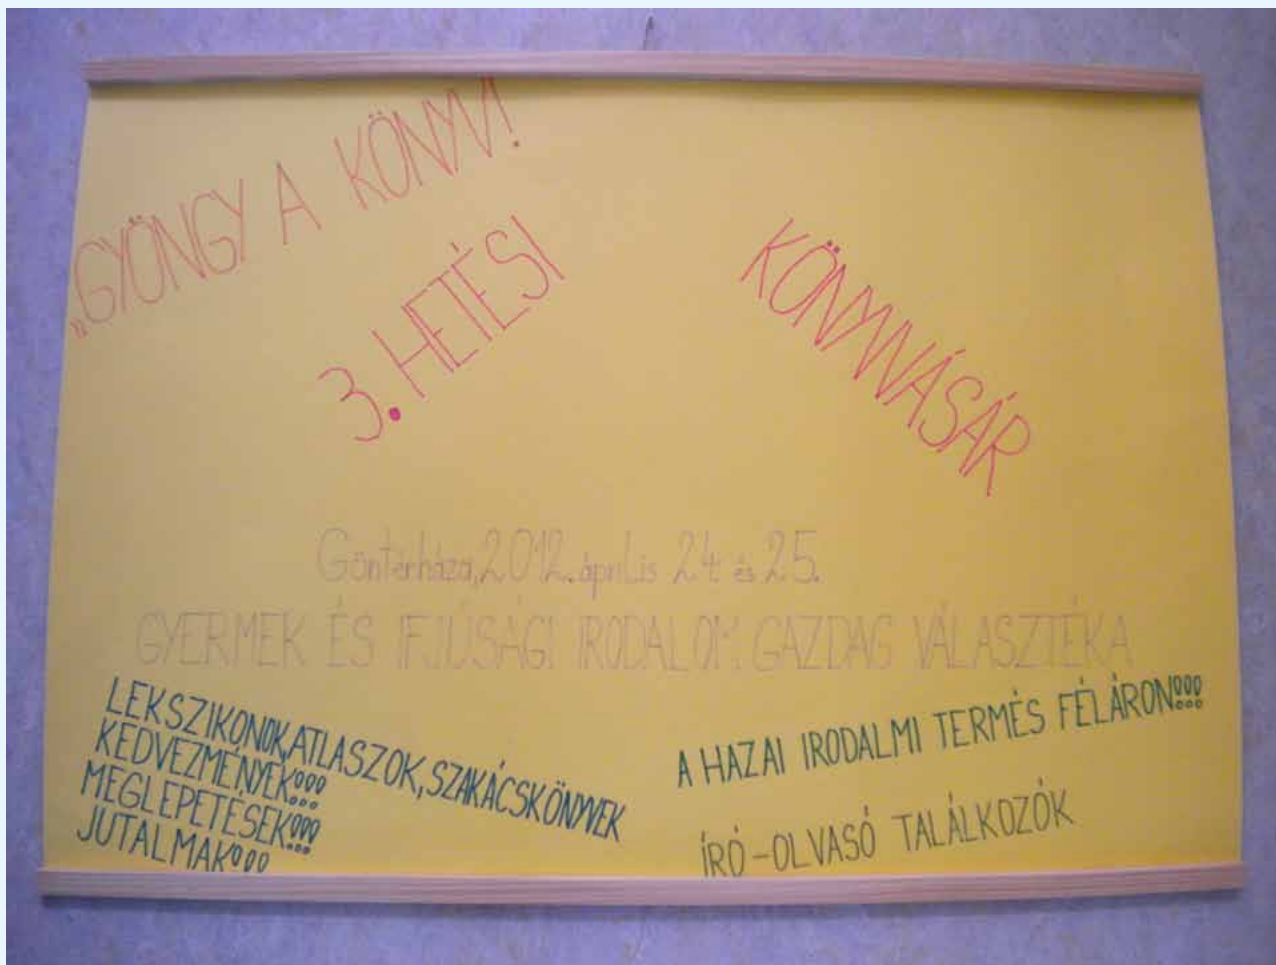 „GYÖNGY A KÖNYV!
3. HETÉSI KÖNYVVÁSÁR
Göntérháza, 2012. április 24 és 25.
GYERMEK ÉS IFJÚSÁGI IRODALOM GAZDAG VÁLASZTÉKA
LEKSZIKONOK, ATLASZOK, SZAKÁCSKÖNYVEK
KEDVEZMÉNYEK!!!
MEGLEPETÉSEK!!!
JUTALMAK!!!
A HAZAI IRODALMI TERMÉS FÉLÁRON!!!
ÍRÓ-OLVASÓ TALÁLKOZÓK